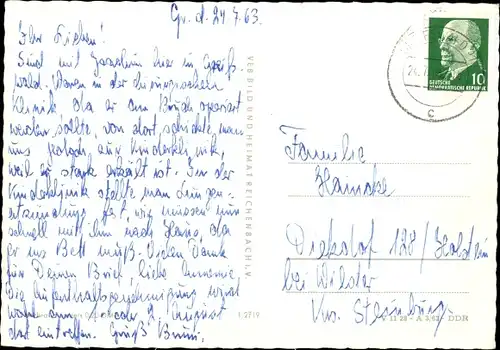 Gr. d. 24.7.63.
Ihr Lieben!
Sind mit Joachim hier in Greifs-
wald. Waren in der chirurgischen
Klinik, da er am Bruch operiert
werden sollte, von dort schickte man
uns zur Kinderklinik,
weil er stark erkältet ist. In der
Kinderklinik stellte man Lungen-
entzündung fest, wir müssen nun
schnell mit ihm nach Hause, da
er ins Bett muß. Vielen Dank
für Deinen Brief liebe
Die Aufenthaltsgenehmigung wird
wohl am 1. oder 2. August
dort eintreffen. Gruß
VEB BILD UND HEIMAT REICHENBACH I. V.
DEUTSCHE
DEMOKRATISCHE REPUBLIK
10
C
Familie
Hancke
Diekdorf 128 / Holstein
bei Wilster
Krs. Steinburg
1.2719
V 11 28 - A 3/63 - DDR